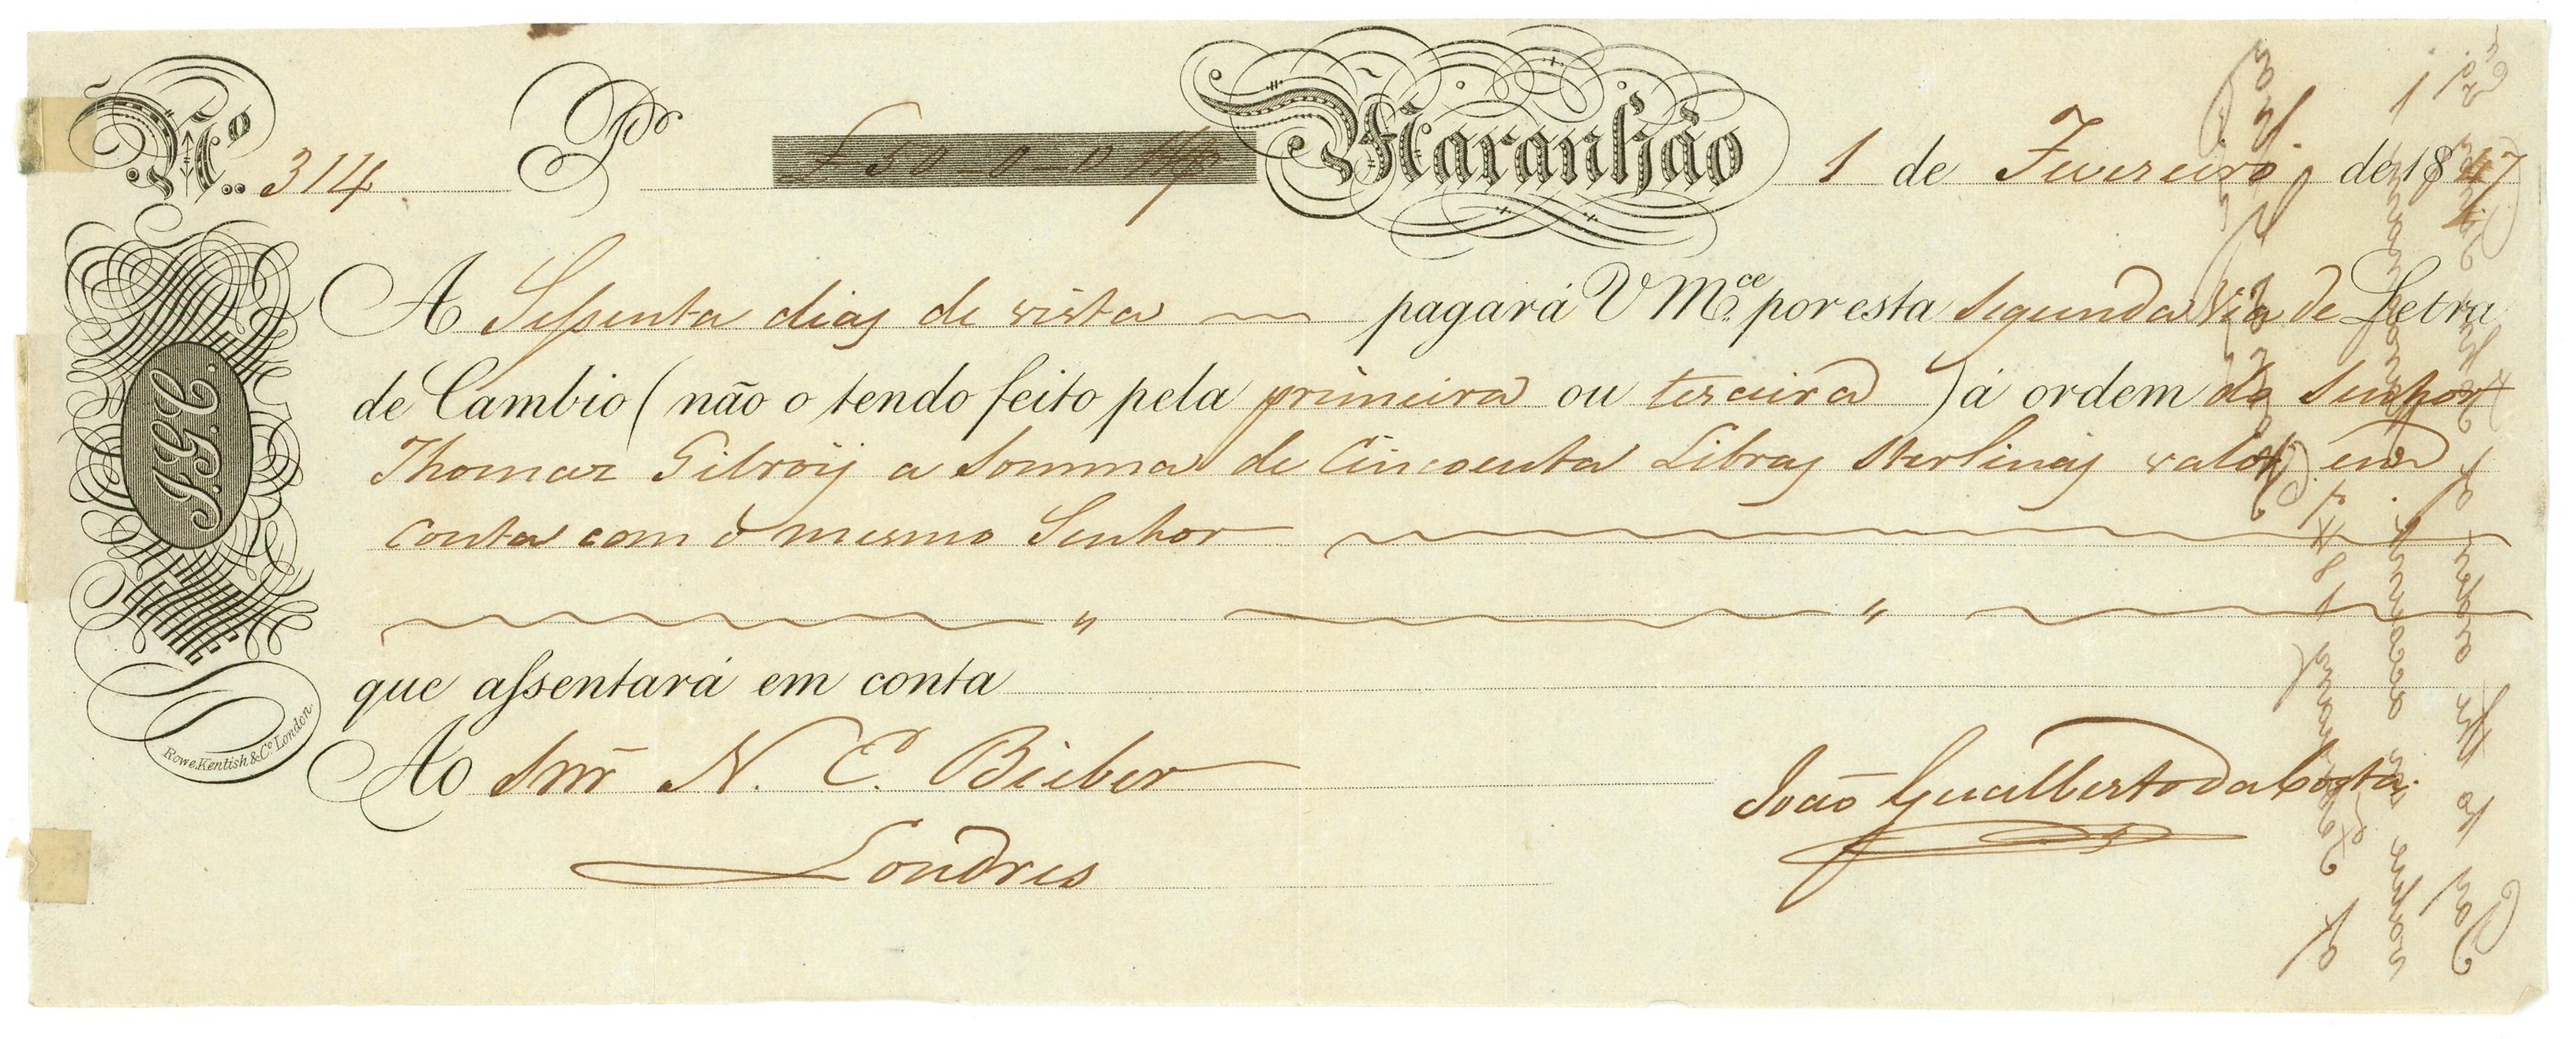 Nº 314 Pr £ 50-0-0 Stg Maranhão 1 de Fevereiro de 1847
A Sessenta dias de vista pagará V Mce. por esta Segunda Via de Letra
de Cambio (não o tendo feito pela primeira ou terceira) á ordem do Senhor
Thomaz Gilroij a Somma de Cincoenta Libras Sterlinas valor em
Conta com o mesmo Senhor
que assentará em conta
Ao Snr N. C. Bieber
Londres
João Gualberto da Costa
J.G.C.
Rowe Kentish & Co. London